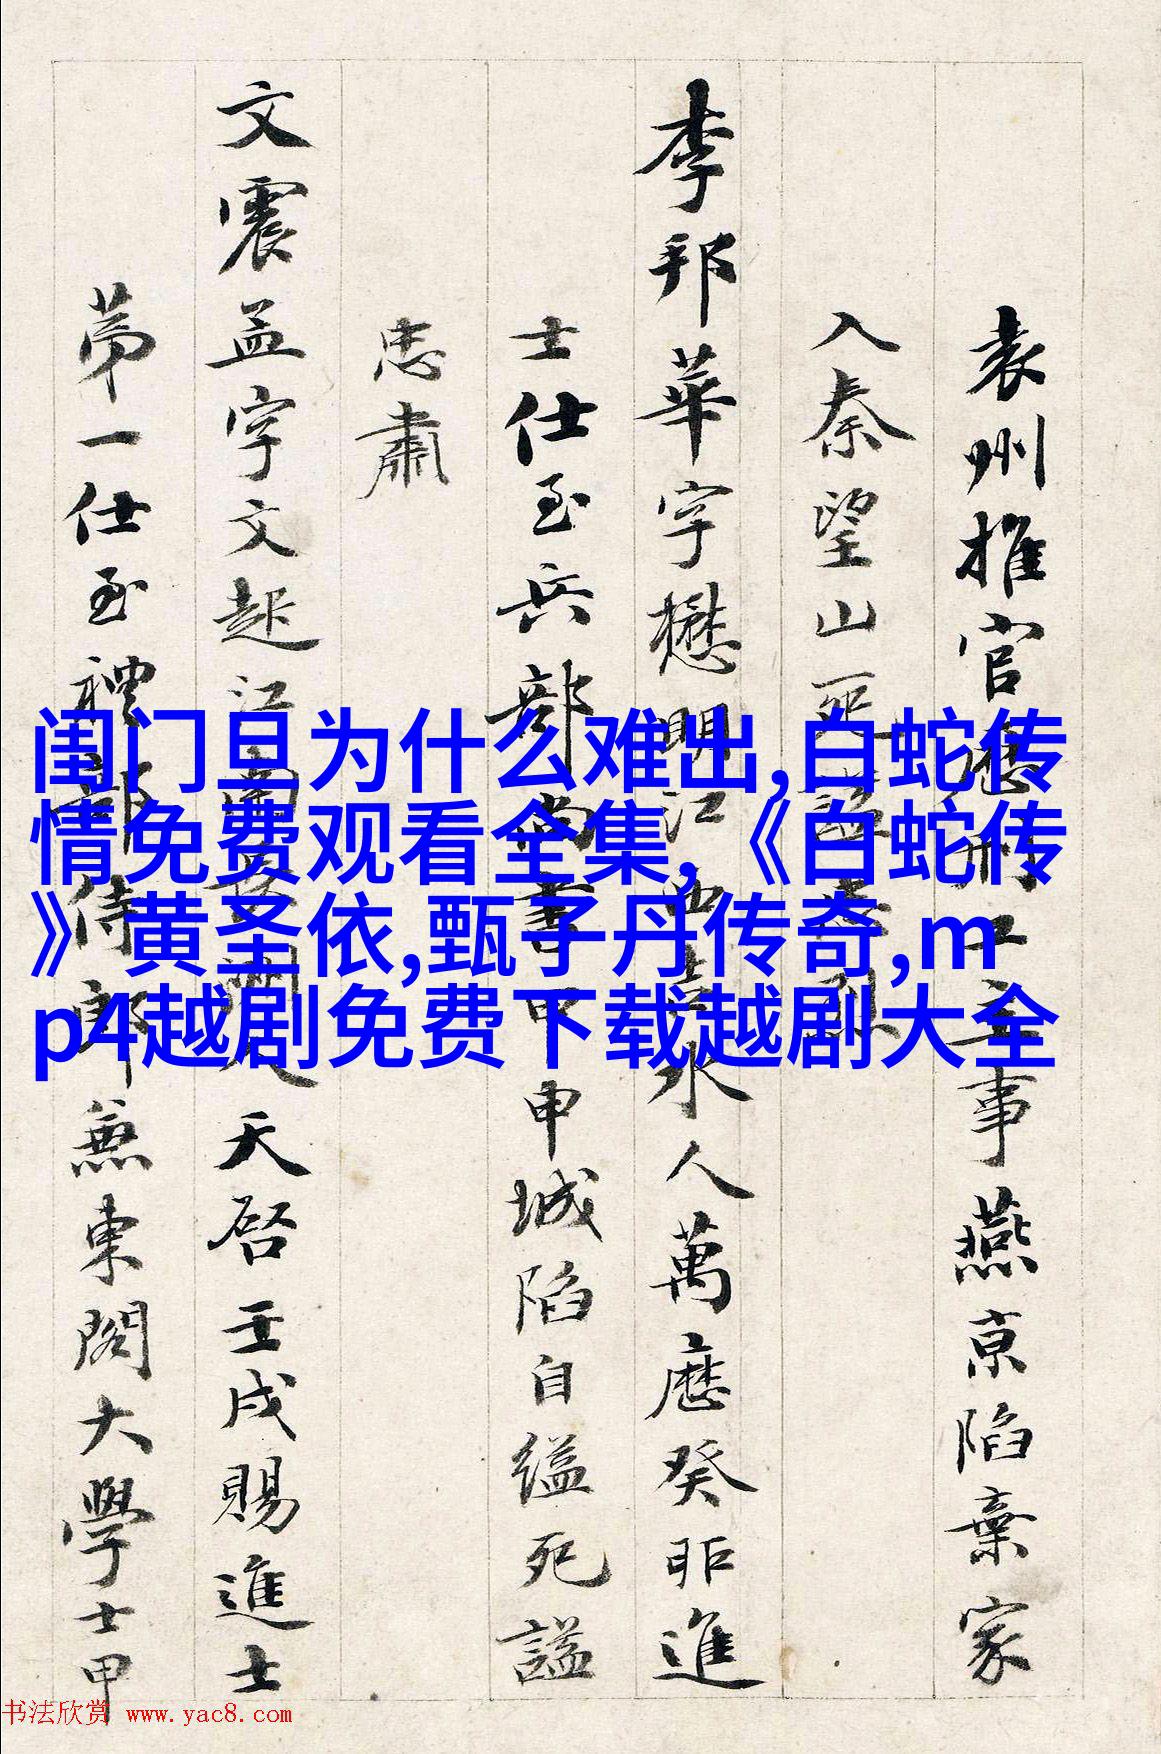 袁州推官歷刑工主事燕京陷棄家
入秦望山死諡
李邦華字懋明江西吉水人萬厯癸卯進
士仕至兵部尚書甲申城陷自縊死謚
忠肅
文震孟字文起江南長洲人天啓壬戌賜進士
第一仕至禮部侍郎兼東閣大學士甲
闺门旦为什么难出,白蛇传
情免费观看全集,《白蛇传
》黄圣依,甄子丹传奇,m
p4越剧免费下载越剧大全
书法欣赏 www.yac8.com